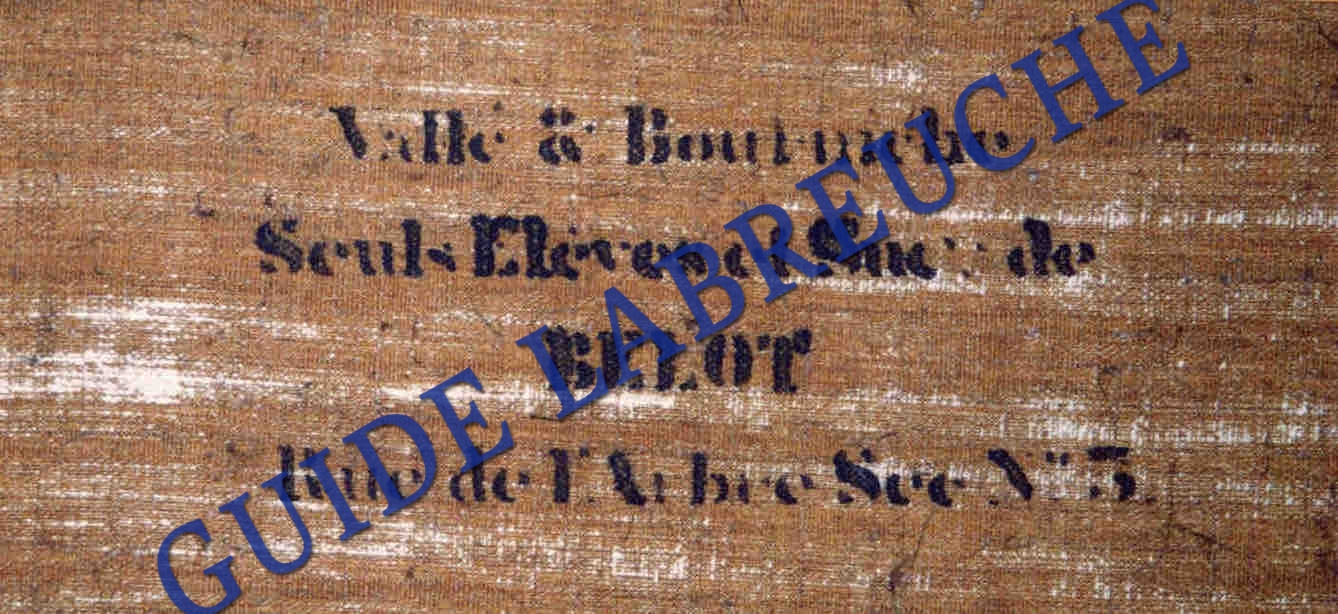 Vallé & Bourniche
Seuls Elèves et Succ de
BELOT
Rue de l'Arbre Sec N° 3.
GUIDE LABREUCHE